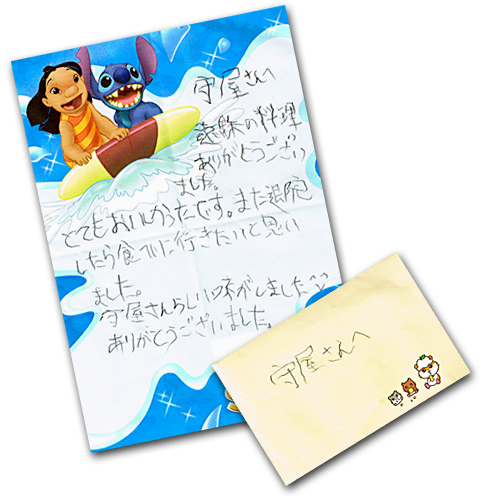 守屋さんへ
の料理
ありがとうござい
ました。
とてもおいしかったです。また退院
したら食べに行きたいと思い
ました。
守屋さんらしい味がしました^^
ありがとうございました。
守屋さんへ